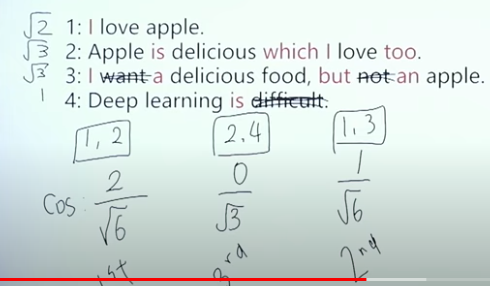 √2 1: I love apple.
√3 2: Apple is delicious which I love too.
√3 3: I want a delicious food, but not an apple.
1 4: Deep learning is difficult.
1, 2 2, 4 1, 3
Cos: 2/√6 0/√3 1/√6
1st 3rd 2nd